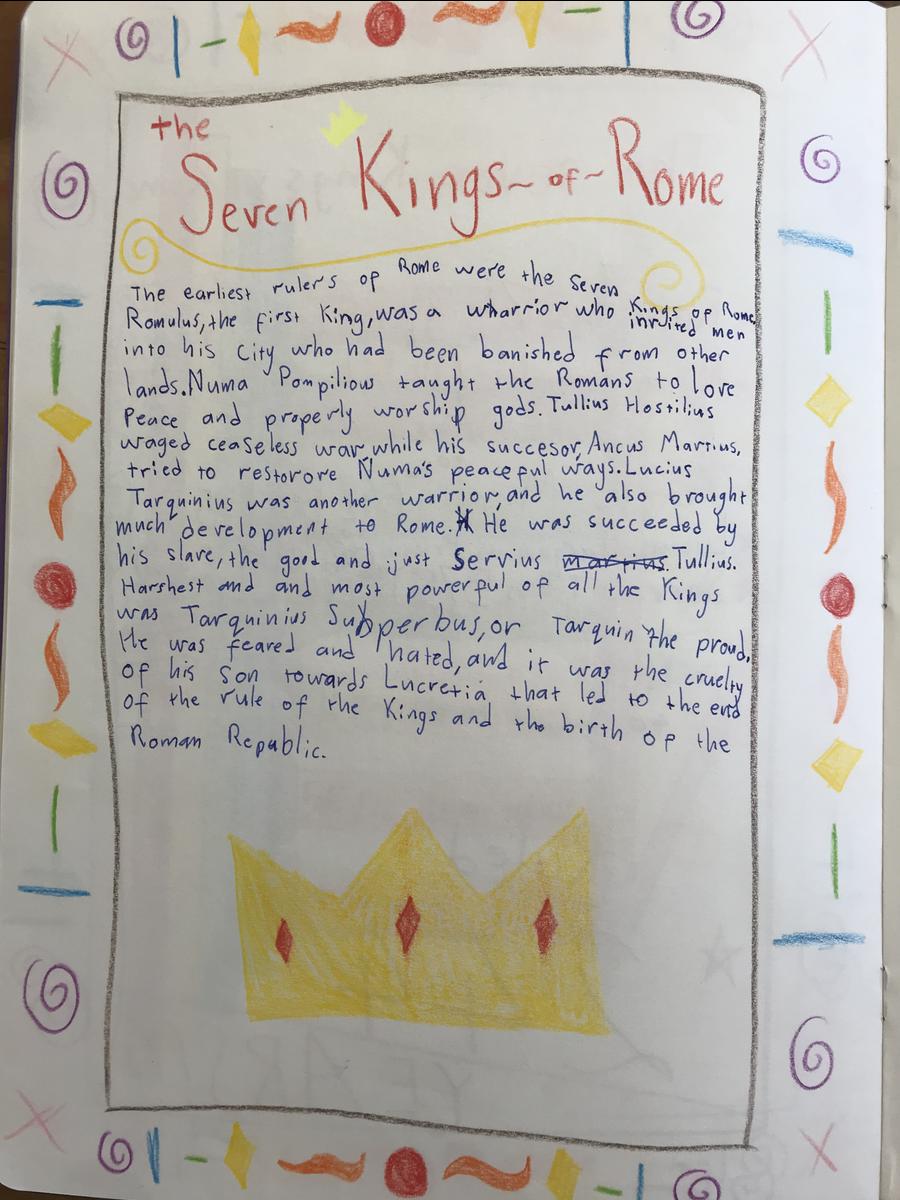 the
Seven Kings~of~Rome
The earliest rulers of Rome were the Seven Kings of Rome.
Romulus, the first King, was a wharrior who invited men
into his City who had been banished from other
lands. Numa Pompilious taught the Romans to love
Peace and properly worship gods. Tullius Hostilius
waged ceaseless war, while his succesor, Ancus Martius,
tried to restorore Numa's peaceful ways. Lucius
Tarquinius was another warrior, and he also brought
much development to Rome. He was succeeded by
his slave, the good and just Servius martius Tullius.
Harshest and and most powerful of all the Kings
was Tarquinius Superbus, or Tarquin the proud.
He was feared and hated, and it was the cruelty
of his Son towards Lucretia that led to the end
of the rule of the Kings and the birth of the
Roman Republic.